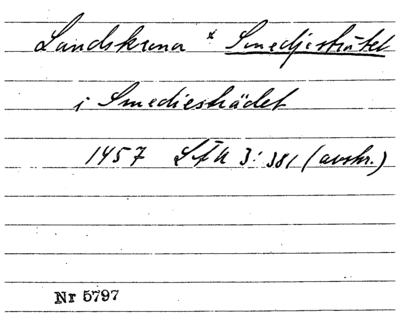 Landskrona * Smedjesträtet
i Smediesträdet
1457 LÄU 3:381 (avskr.)
Nr 5797